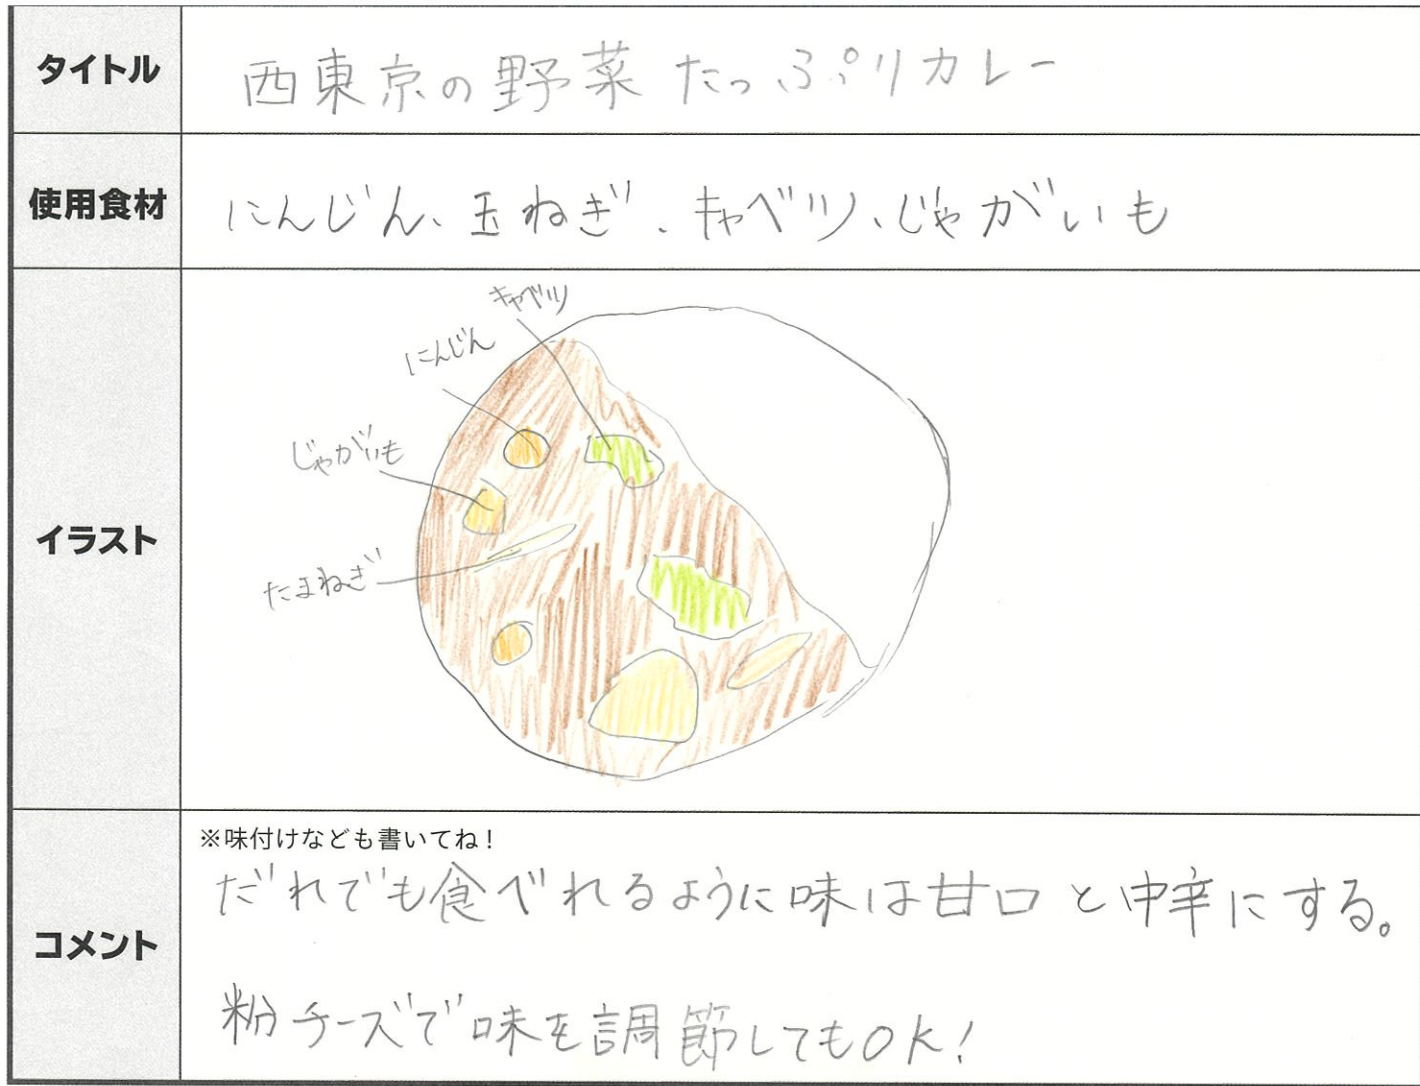 タイトル
西東京の野菜たっぷりカレー
使用食材
にんじん、玉ねぎ、キャベツ、じゃがいも
イラスト
キャベツ
にんじん
じゃがいも
たまねぎ
コメント
※味付けなども書いてね！
だれでも食べれるように味は甘口と中辛にする。
粉チーズで味を調節してもOK!